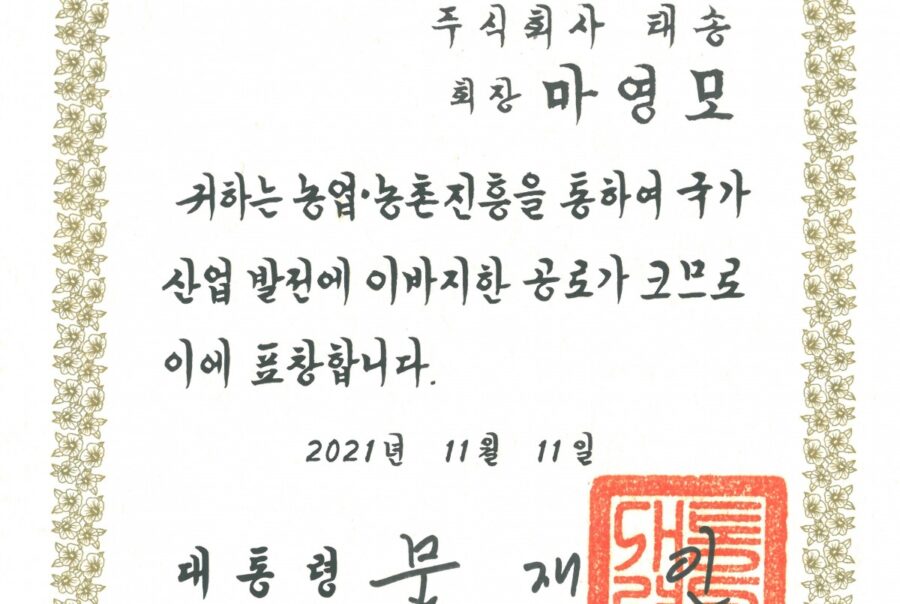 주식회사 태송
회장 마영모
귀하는 농업·농촌진흥을 통하여 국가
산업 발전에 이바지한 공로가 크므로
이에 표창합니다.
2021년 11월 11일
대통령 문재인